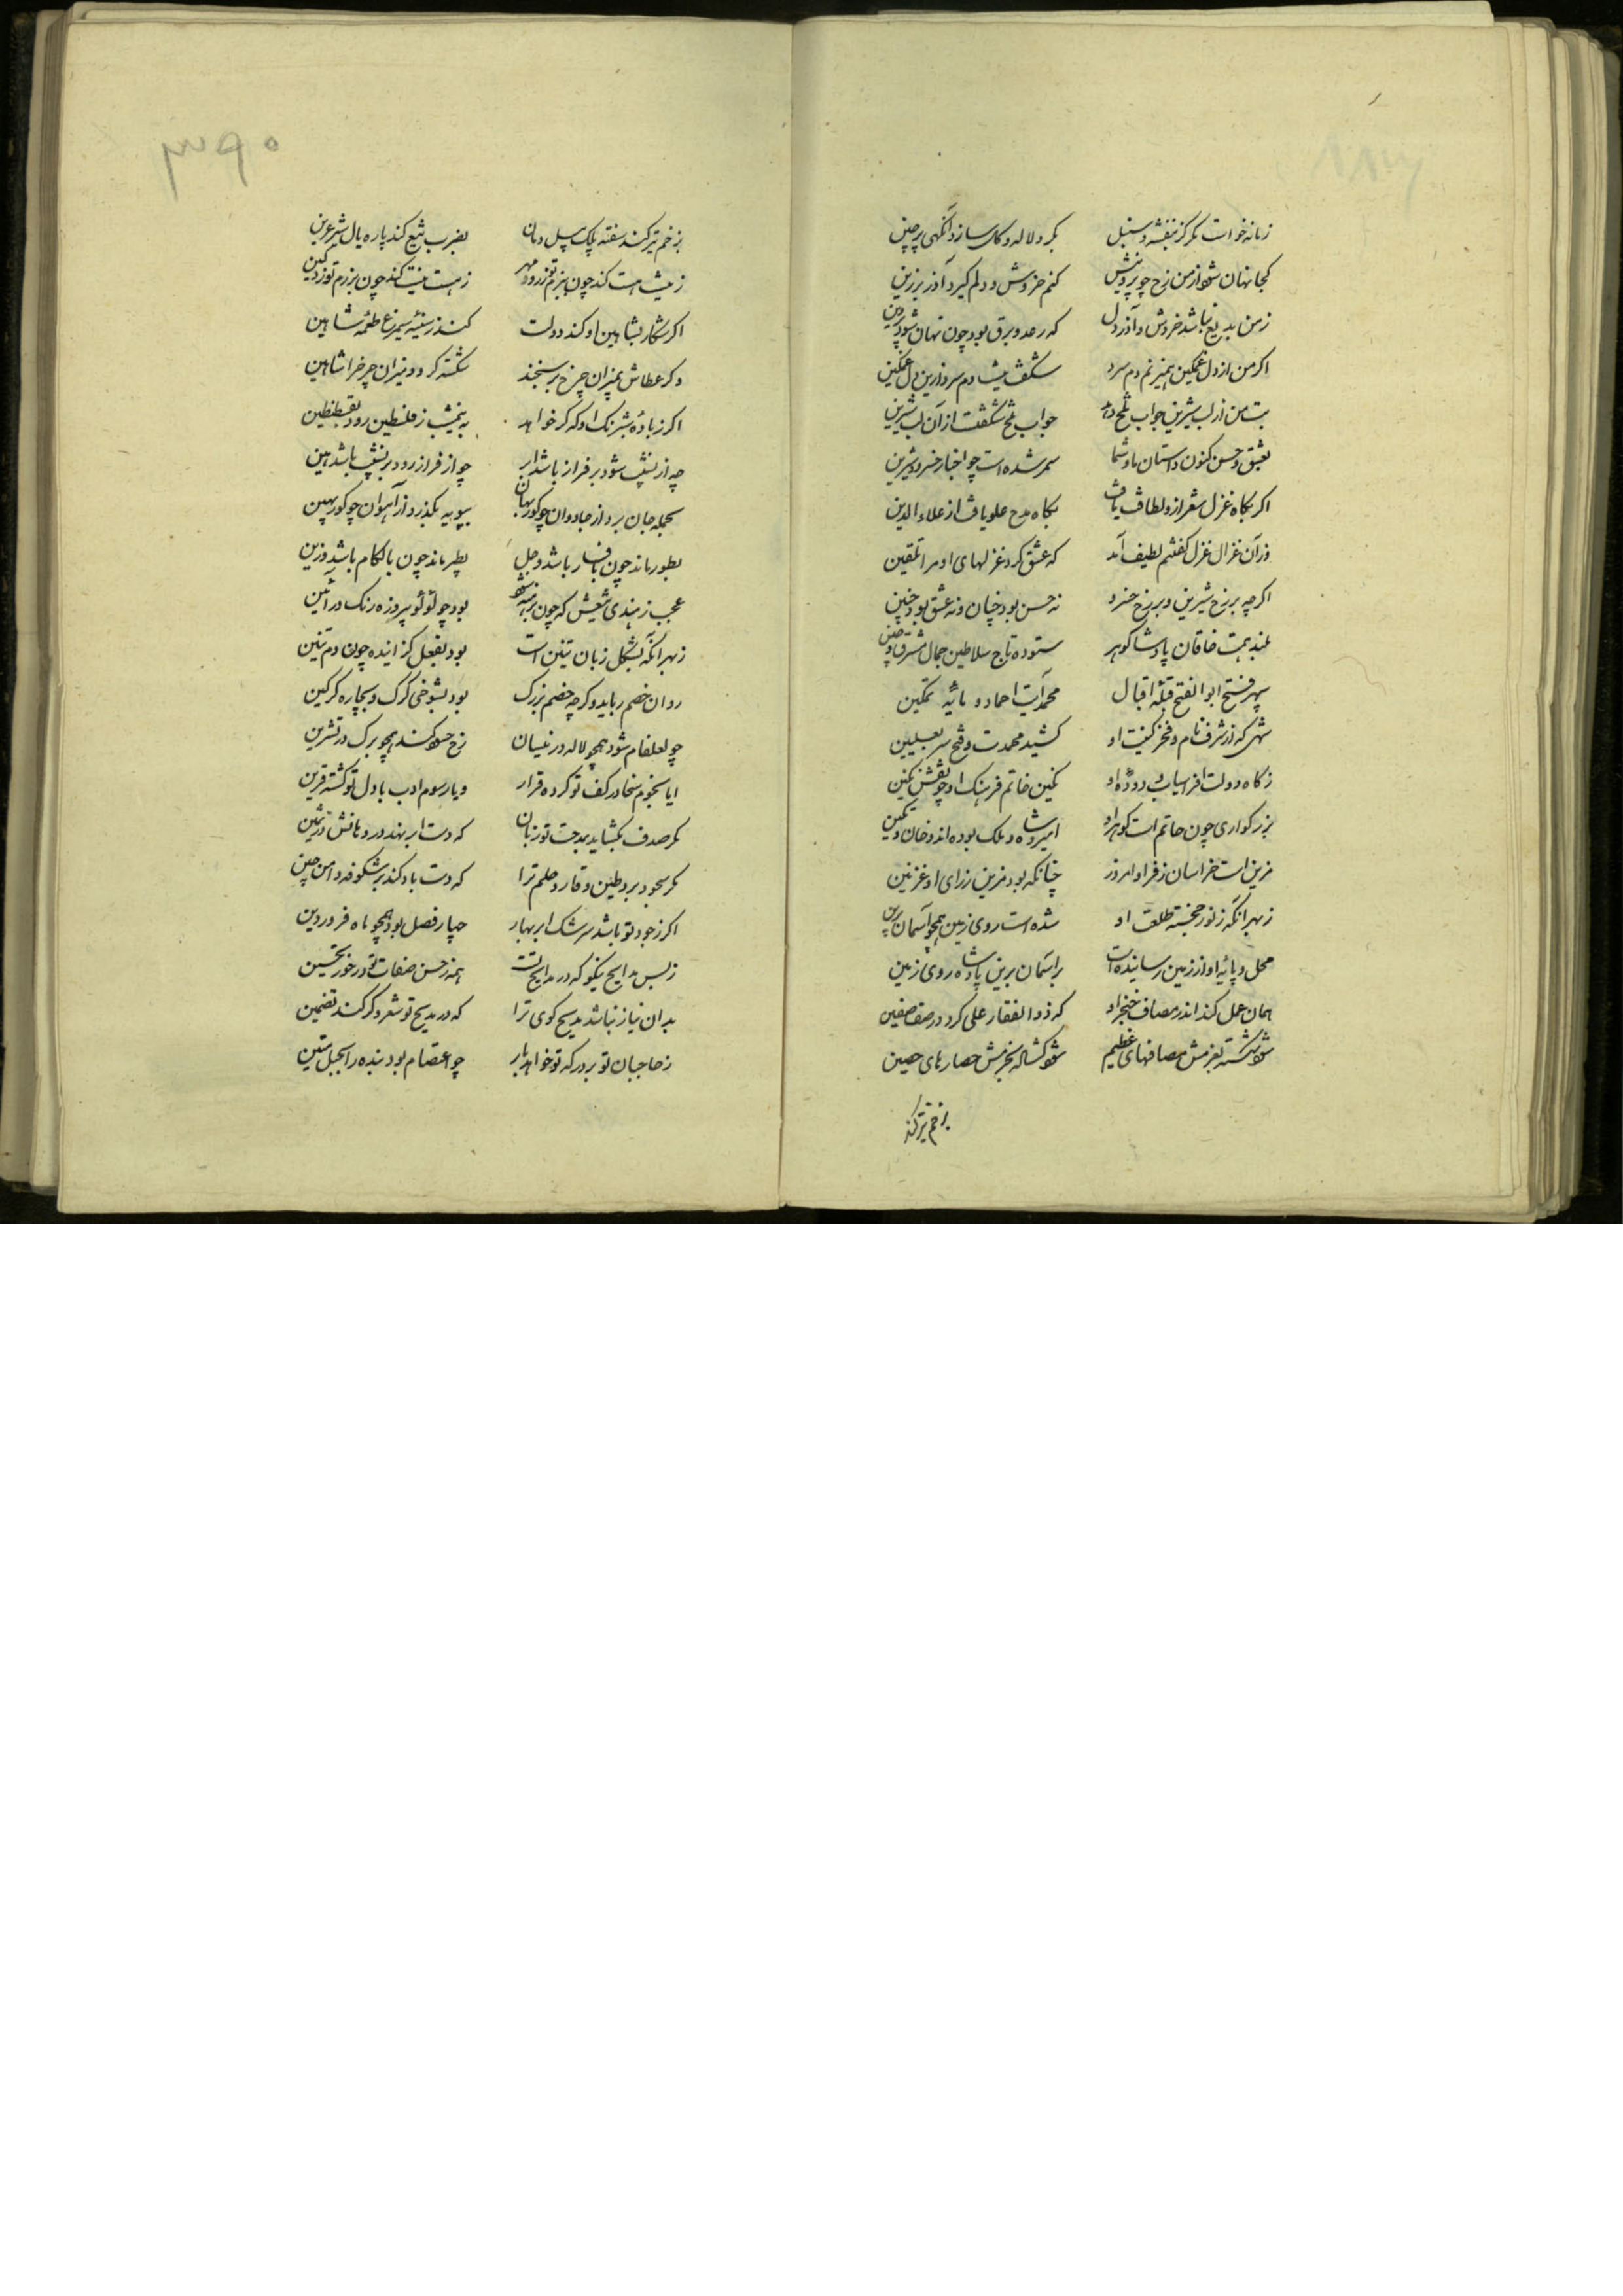 زمانه خواست مگر کز بنفشه و سنبل بگرد لاله و گل سازد آنگهی پرچین
کجا نهان شود از من رخ چو پروینش کنم خروش و دلم گیرد آذر برزین
ز من بدیع نباشد خروش و آذر دل که رعد و برق بود چون نهان شود پروین
اکر من از دل غمکین همیزنم دم سرد شگفت نیست دم سرد ازین دل غمکین
بت من از لب شیرین جواب تلخ دهد جواب تلخ شکفتست از آن لب شیرین
بعشق و حسن کنون داستان ما و شما سمر شده است چو اخبار خسرو و شیرین
اکر بکاه غزل شعر ازو لطافت یافت بکاه مدح علو یافت از علاء الدین
در آن غزال غزل گفتنم لطیف آمد که عشق کرد غزلهای او مرا تلقین
اکرچه بر رخ شیرین و بر رخ خسرو نه حسن بود چنان و نه عشق بود چنین
بلند همت خاقان پادشا کوهر ستوده تاج سلاطین جمال مشرق و چین
سپهر فتح ابوالفتح قبله اقبال محمد آیت احماد و مایه تمکین
شهی که از شرف نام و فخر کنیت او کشید محمدت و فتح سر بعلیین
ز کاه دولت افراسیاب و دوده او نکین خاتم فرهنک او چو نقش نکین
بزرکواری چون حاتم است کوهر او امیر و شاه و ملک بوده اند و خان و تکین
مزین است خراسان ز فر او امروز چنانکه بود مزین ز رای او غزنین
ز بهر آنکه ز نور خجسته طلعت او شده است روی زمین همچو آسمان برین
محل و پایه او از زمین رسانیده است بر آسمان برین پادشاه روی زمین
همان عمل کند اندر مصاف خنجر او که ذوالفقار علی کرد در صف صفین
شود شکسته بعزمش مصافهای عظیم شود کشاده بحزمش حصارهای حصین
بزخم تیر کند
بزخم تیر کند سفته پلک پیل دمان بضرب تیغ کند پاره یال شیر عرین
ز نیست هست کند چون ببزم توزد مهر ز هست نیست کند چون برزم توزد کین
اکر شکار بشاهین او کند دولت کند ز سینه سیمرغ طعمه شاهین
وکر عطاش بمیزان چرخ بر سنجند شکسته کردد میزان چرخ را شاهین
چه از نشیب شود بر فراز باشد ابر چو از فراز رود بر نشیب باشد هین
بحمله جان برد از جادوان چو کور بهان بپویه بکذرد از آهوان چو کور بهین
بطور ماند چون با فسار باشد و جل بطیر ماند چون با لکام باشد و زین
عجب ز هندی تیغش که چون برهنه شود بود چو لؤلؤ پیروزه رنک در آئین
ز بهر آنکه بشکل زبان تنین است بود بفعل کزاینده چون دم تنین
روان خصم رباید وکر چه خصم بزرک بود بشوخی کرک و بچاره کرکین
چو لعل فام شود همچو لاله در نیسان رخ حسود کند همچو برک در تشرین
ایا نجوم سخا در کف تو کرده قرار و یا رسوم ادب با دل تو کشته قرین
مکر صدف بکشاید بمدحت تو زبان که دست ابر نهد در دهانش در ثمین
مکر سجود برد طین وقار و حلم ترا که دست باد کند پر شکوفه دامن چین
اکر ز جود تو باشد سرشک ابر بهار چهار فصل بود همچو ماه فروردین
ز بس مدایح نیکو که در مدایح تست همه ز حسن صفات تو در خور تحسین
بدان نیاز نباشد مدیح کوی ترا که در مدیح تو شعر دکر کند تضمین
ز حاجبان تو بر درکه تو خواهد بار چو اعتصام بود بنده را بحبل متین
۳۹۰